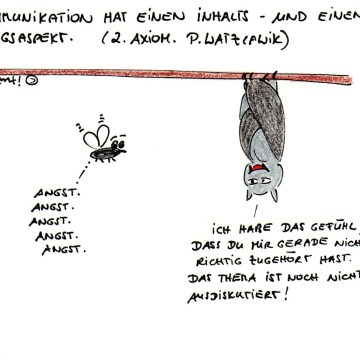 MUNIKATION HAT EINEN INHALTS - UND EINEN
GSASPEKT. (2. AXIOM. P. WATZLAWIK)
ANGST.
ANGST.
ANGST.
ANGST.
ANGST.
ICH HABE DAS GEFÜHL,
DASS DU MIR GERADE NICH
RICHTIG ZUGEHÖRT HAST.
DAS THEMA IST NOCH NICHT
AUSDISKUTIERT!